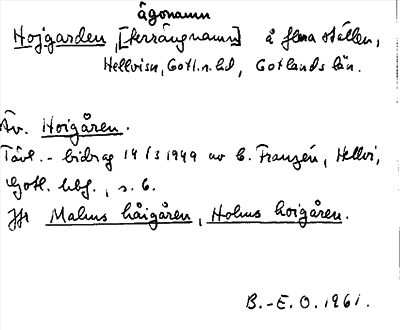 ägonamn
Hojgarden, [terrängnamn] å flera ställen,
Hellvi sn, Gotl. n. hd, Gotlands län.
Äv. Hoigåren.
Tävl.-bidrag 14/3 1949 av E. Franzén, Hellvi,
Gotl. hbf., s. 6.
Jfr Malms håigåren, Holms hoigåren.
B.-E. O. 1961.